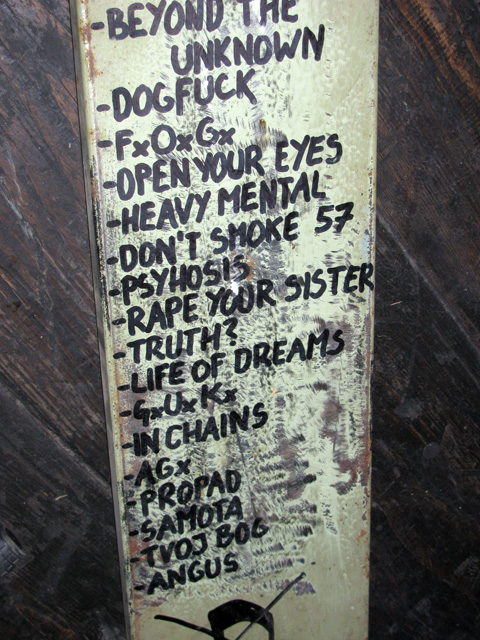 -BEYOND THE
UNKNOWN
-DOGFUCK
-FxOxGx
-OPEN YOUR EYES
-HEAVY MENTAL
-DON'T SMOKE 57
-PSYHOSIS
-RAPE YOUR SISTER
-TRUTH?
-LIFE OF DREAMS
-GxUxKx
-IN CHAINS
-AGx
-PROPAD
-SAMOTA
-TVOJ BOG
-ANGUS